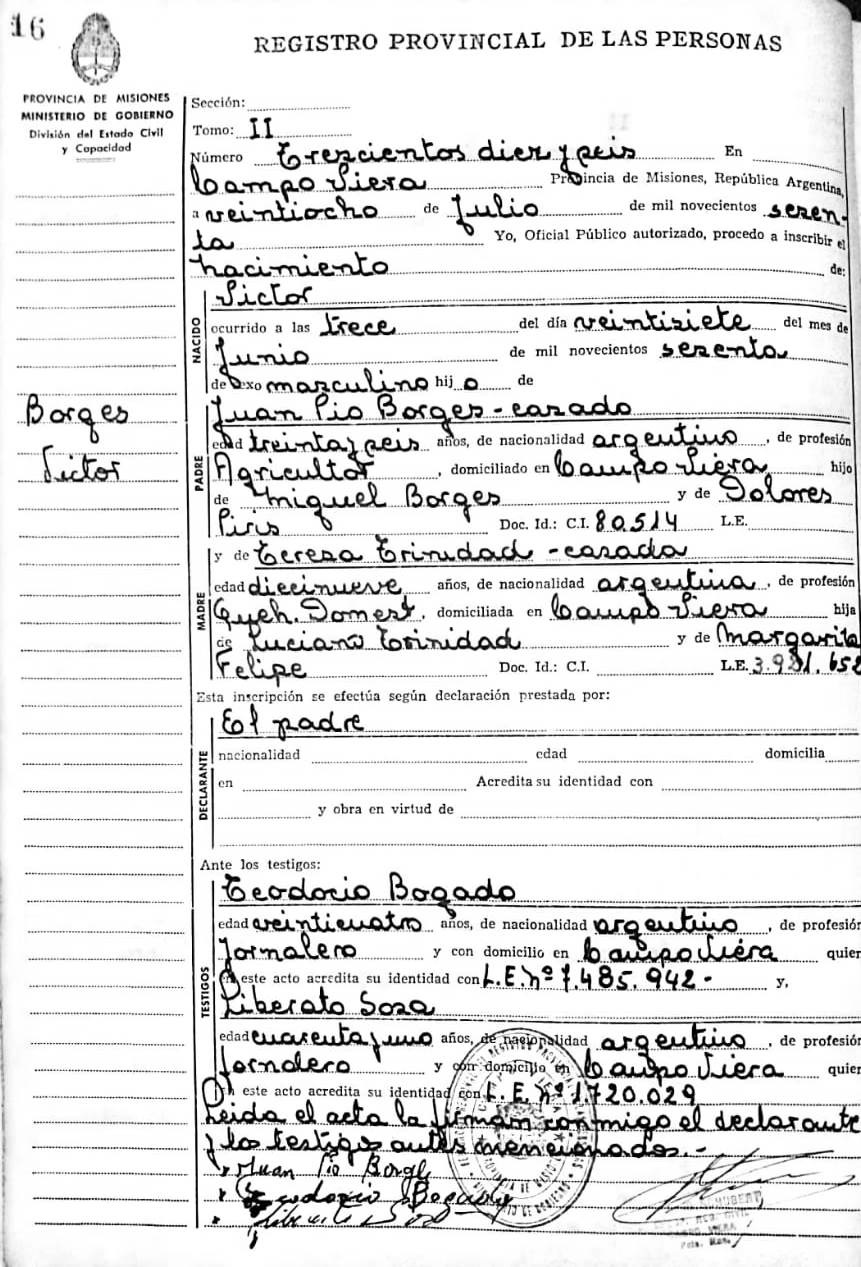 16
REGISTRO PROVINCIAL DE LAS PERSONAS
PROVINCIA DE MISIONES
MINISTERIO DE GOBIERNO
División del Estado Civil
y Capacidad
Borges
Victor
Sección:
Tomo: II
Número Trescientos diez y seis En
Campo Viera Provincia de Misiones, República Argentina,
a veintiocho de Julio de mil novecientos sesen-
ta Yo, Oficial Público autorizado, procedo a inscribir el
nacimiento de:
NACIDO
Victor
ocurrido a las trece del día veintisiete del mes de
Junio de mil novecientos sesenta
de sexo masculino hij o de
PADRE
Juan Pio Borges - casado
edad treinta y seis años, de nacionalidad argentino, de profesión
Agricultor, domiciliado en Campo Viera hijo
de Miguel Borges y de Dolores
Piris Doc. Id.: C.I. 80.514 L.E.
MADRE
y de Teresa Trinidad - casada
edad diecinueve años, de nacionalidad argentina, de profesión
Queh. Domest., domiciliada en Campo Viera hija
de Luciano Trinidad y de Margarita
Felipe Doc. Id.: C.I. L.E. 3.981.652
Esta inscripción se efectúa según declaración prestada por:
DECLARANTE
El padre
nacionalidad edad domicilia
en Acredita su identidad con
y obra en virtud de
Ante los testigos:
TESTIGOS
Teodocio Bogado
edad veinticuatro años, de nacionalidad argentino, de profesión
Jornalero y con domicilio en Campo Viera quien
en este acto acredita su identidad con L.E. nº 7.485.942- y,
Liberato Sosa
edad cuarenta y uno años, de nacionalidad argentino, de profesión
Jornalero y con domicilio en Campo Viera quien
en este acto acredita su identidad con L.E. nº 1.720.029
Leida el acta la firman conmigo el declarante
y los testigos antes mencionados.-
Juan Pio Borge
Teodocio Bogado
Liberato Sosa